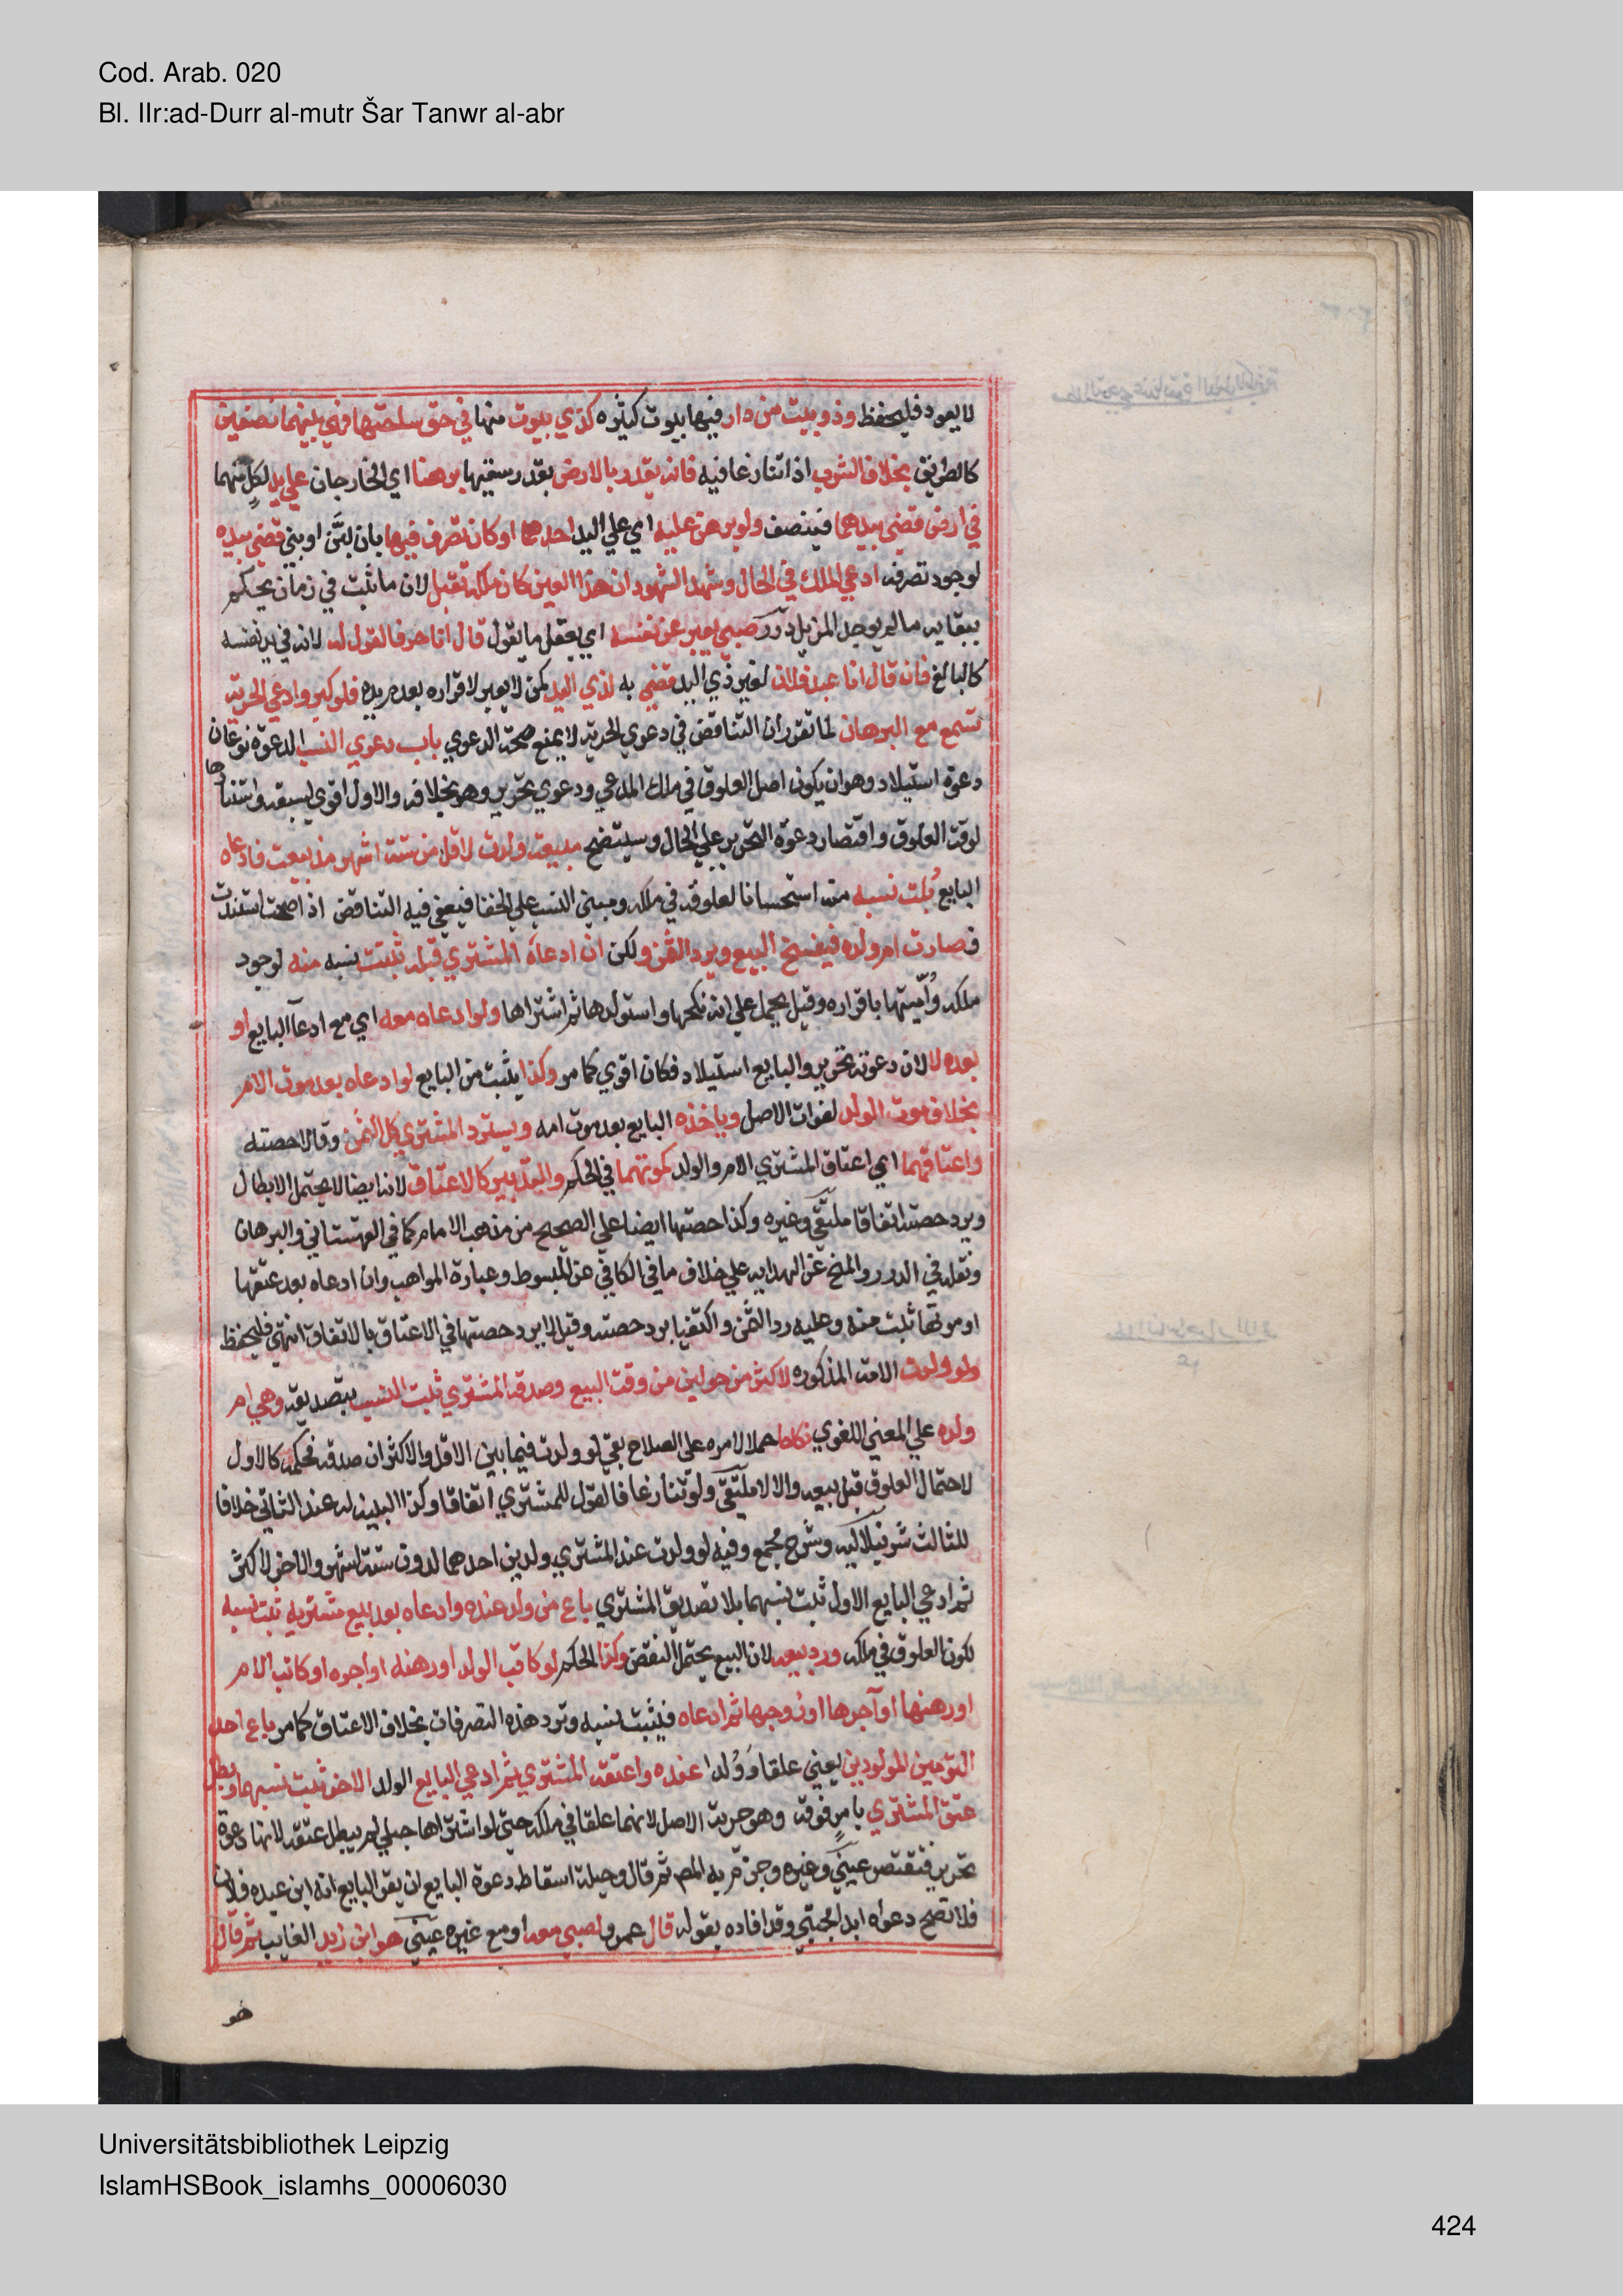 Cod. Arab. 020
Bl. IIr:ad-Durr al-mutr Šar Tanwr al-abr
لا يعود فليحفظ وذو بيت من دار فيها بيوت كثيره كذي بيوت منها في حق ساحتها فهي بينهما نصفين
كالطريق بخلاف الشرب اذا تنازعا فيه فانه يقدر بالارض بقدر سقيها برهنا اي الخارجان علي يد لكل منهما
في ارض قضي بيدهما فينصف ولو برهن عليه اي علي اليد احدهما او كان تصرف فيها بان لبن او بني قضي بيده
لوجود تصرفه ادعي الملك في الحال وشهد الشهود ان هذا العين كان ملكه تقبل لان ما ثبت في زمان يحكم
ببقايه ما لم يوجد المزيل درر صبي يعبر عن نفسه اي يعقل ما يقول قال انا حر فالقول له لانه في يد نفسه
كالبالغ فان قال انا عبد فلان لغير ذي اليد قضي به لذي اليد كمن لا يعبر لاقراره بعدم يده فلو كبر وادعي الحرية
تسمع مع البرهان لما تقرر ان التناقض في دعوي الحرية لا يمنع صحة الدعوي باب دعوي النسب الدعوة نوعان
دعوة استيلاد وهو ان يكون اصل العلوق في ملك المدعي ودعوي تحرير وهو بخلافه والاول اقوي لسبقه واستنادها
لوقت العلوق واقتصار دعوة التحرير علي الحال وسيتضح مبيعة ولدت لاقل من ستة اشهر مذ بيعت فادعاه
البايع ثبت نسبه منه استحسانا لعلوقه في ملكه ومبني النسب علي الخفا فيعفي فيه التناقض اذا صحت استندت
فصارت ام ولده فيفسخ البيع ويرد الثمن ولكن ان ادعاه المشتري قبله ثبت نسبه منه لوجود
ملكه وأميتها باقراره وقيل يحمل علي انه نكحها واستولدها ثم اشتراها ولو ادعاه معه اي مع ادعآ البايع او
بعده لا لان دعوته تحرير والبايع استيلاد فكان اقوي كما مر وكذا يثبت من البايع لو ادعاه بعد موت الام
بخلاف موت الولد لفوات الاصل وياخذه البايع بعد موت امه ويسترد المشتري كل الثمن وقالا حصته
واعتاقهما اي اعتاق المشتري الام والولد كموتهما في الحكم والتدبير كالاعتاق لانه ايضا لا يحتمل الابطال
ويرد حصته اتفاقا ملتقي وغيره وكذا حصتها ايضا علي الصحيح من مذهب الامام كما في القهستاني والبرهان
ونقله في الدرر والمنح عن الهدايه علي خلاف ما في الكافي عن المبسوط وعبارة المواهب وان ادعاه بعد عتقها
او موتها ثبت منه وعليه رد الثمن واكتفيا برد حصته وقيل لا يرد حصتها في الاعتاق بالاتفاق انتهي فليحفظ
ولو ولدت الامة المذكوره لاكثر من حولين من وقت البيع وصدقه المشتري ثبت النسب بتصديقه وهي ام
ولده علي المعني اللغوي نكاحا حملا لامره علي الصلاح بقي لو ولدت فيما بين الاقل والاكثر ان صدقه فحكمه كالاول
لاحتمال العلوق قبل بيعه والا لا ملتقي ولو تنازعا فالقول للمشتري اتفاقا وكذا البينه له عند الثاني خلافا
للثالث شرنبلاليه وشرح مجمع وفيه لو ولدت عند المشتري ولدين احدهما لدون ستة اشهر والاخر لاكثر
ثم ادعي البايع الاول ثبت نسبهما بلا تصديق المشتري باع من ولد عنده وادعاه بعد بيع مشتريه ثبت نسبه
لكون العلوق في ملكه ورد بيعه لان البيع يحتمل النقض وكذا الحكم لو كاتب الولد او رهنه او اجره او كاتب الام
او رهنها او آجرها او زوجها ثم ادعاه فيثبت نسبه وترد هذه التصرفات بخلاف الاعتاق كما مر باع احد
التومين المولودين يعني علقا وولدا عنده واعتقه المشتري ثم ادعي البايع الولد الاخر ثبت نسبهما وبطل
عتق المشتري بامر فوقه وهو حرية الاصل لانهما علقا في ملكه حتي لو اشتراها حبلي لم يبطل عتقه لانها دعوة
تحرير فتقتصر عيني وغيره وجزم به المص ثم قال وحيلة اسقاط دعوة البايع ان يقر البايع انه ابن عبده فلان
فلا تصح دعواه ابدا مجتبي وقد افاده بقوله قال عمرو لصبي معه او مع غيره عيني هو ابن زيد الغايب ثم قال
هو
Universitätsbibliothek Leipzig
IslamHSBook_islamhs_00006030
424